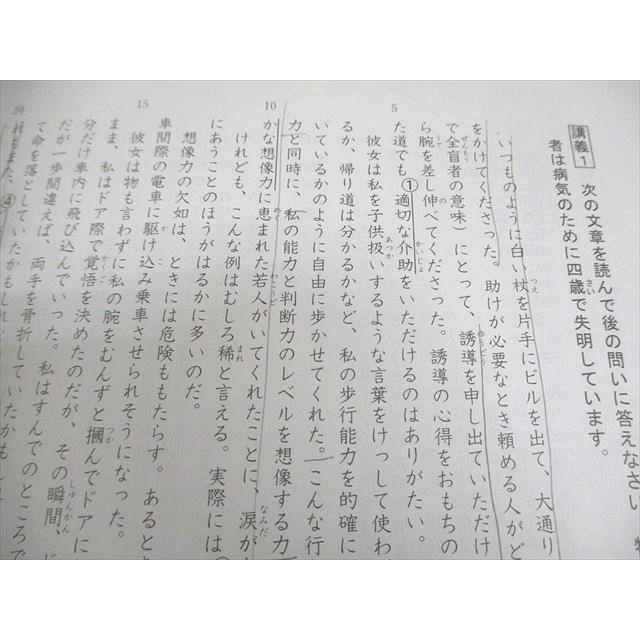 講義1
次の文章を読んで後の問いに答えなさい
者は病気のために四歳で失明しています。
いつものように白い杖を片手にビルを出て、大通り
をかけてくださった。助けが必要なとき頼める人がど
で全盲者の意味）にとって、誘導を申し出ていただけ
ら腕を差し伸べてくださった。誘導の心得をおもちの
た道でも①適切な介助をいただけるのはありがたい。
彼女は私を子供扱いするような言葉をけっして使わ
るか、帰り道は分かるかなど、私の歩行能力を的確に
いているかのように自由に歩かせてくれた。こんな行
力と同時に、私の能力と判断力のレベルを想像する力
かな想像力に恵まれた若人がいてくれたことに、涙が
けれども、こんな例はむしろ稀と言える。実際には
にあうことのほうがはるかに多いのだ。
想像力の欠如は、ときには危険ももたらす。あると
車間際の電車に駆け込み乗車させられそうになった。
彼女は物も言わずに私の腕をむんずと摑んでドアに
まま、私はドア際で覚悟を決めたのだが、その瞬間、
分だけ車内に飛び込んでいった。私はすんでのところで
だが一歩間違えば、両手を骨折していたかもし
て命を落としていたかもしれ
れもまた、④
5
10
15
20